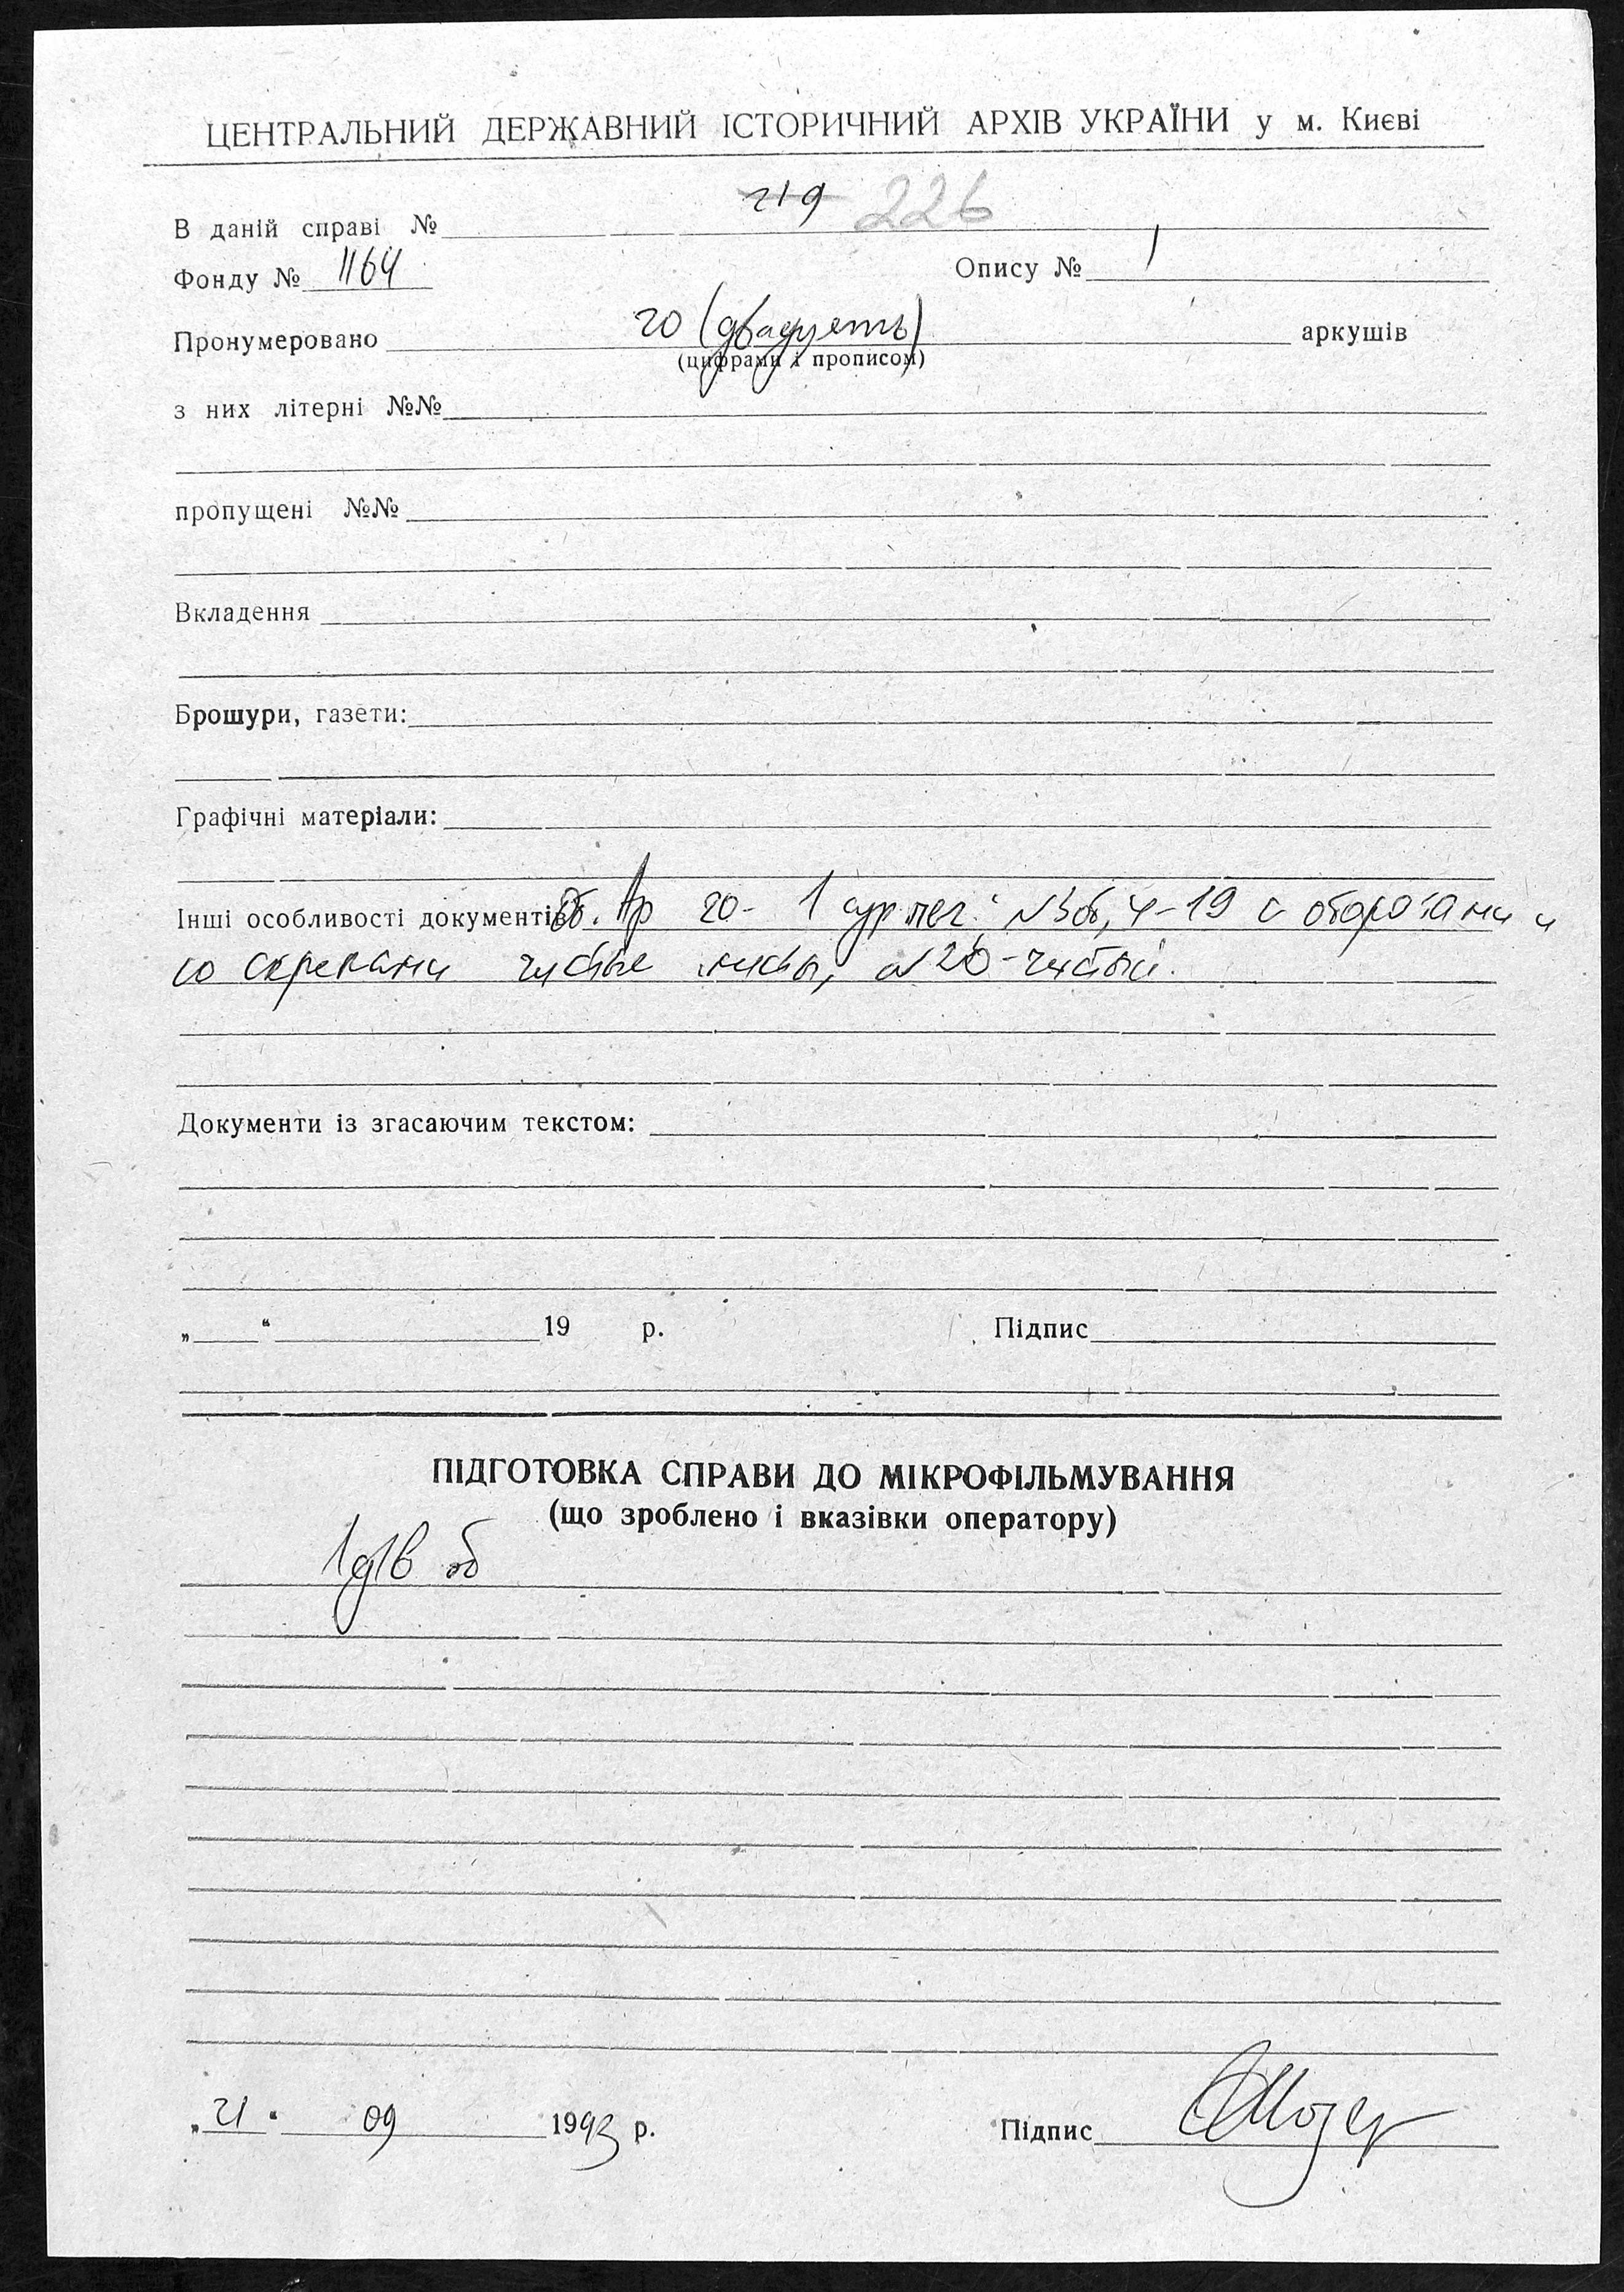 ЦЕНТРАЛЬНИЙ ДЕРЖАВНИЙ ІСТОРИЧНИЙ АРХІВ УКРАЇНИ у м. Києві
В даній справі № 219 226
Фонду № 1164 Опису № 1
Пронумеровано 20 (двадцять) аркушів
(цифрами і прописом)
з них літерні №№
пропущені №№
Вкладення
Брошури, газети:
Графічні матеріали:
Інші особливості документів: Ар 20 - 1 №3 об, 4-19 с оборотами и
со скрепами чистые листы, №20 - чистый.
Документи із згасаючим текстом:
„ “ 19 р. Підпис
ПІДГОТОВКА СПРАВИ ДО МІКРОФІЛЬМУВАННЯ
(що зроблено і вказівки оператору)
об
„21“ 09 1993 р. Підпис